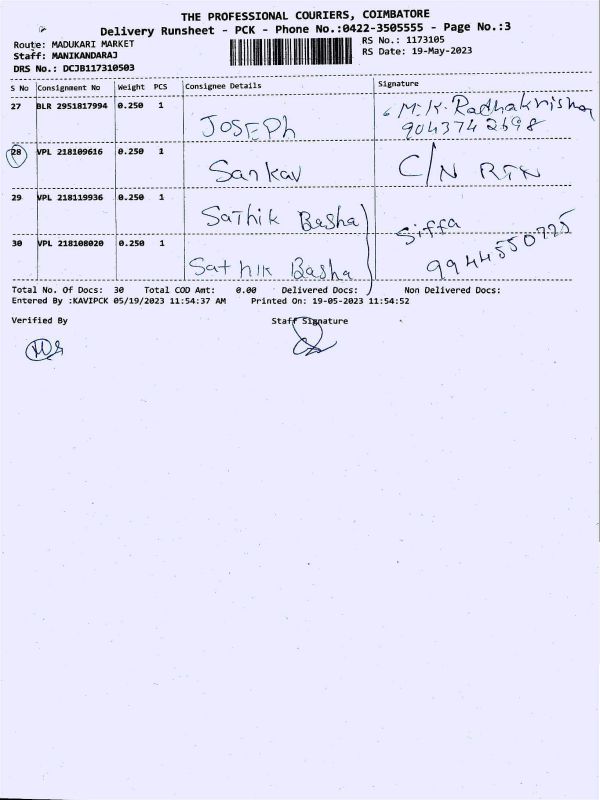 THE PROFESSIONAL COURIERS, COIMBATORE
Delivery Runsheet - PCK - Phone No.:0422-3505555 - Page No.:3
Route: MADUKARI MARKET
RS No.: 1173105
Staff: MANIKANDARAJ
RS Date: 19-May-2023
DRS No.: DCJB117310503
S No Consignment No Weight PCS Consignee Details Signature
27 BLR 2951817994 0.250 1 JOSEPh M.K. Radhakrishna
9043742698
28 VPL 218109616 0.250 1 Sankav C/N RTN
29 VPL 218119936 0.250 1 Sathik Basha Siffa
30 VPL 218108020 0.250 1 Sathik Basha 9944550725
Total No. Of Docs: 30 Total COD Amt: 0.00 Delivered Docs: Non Delivered Docs:
Entered By :KAVIPCK 05/19/2023 11:54:37 AM Printed On: 19-05-2023 11:54:52
Verified By Staff Signature